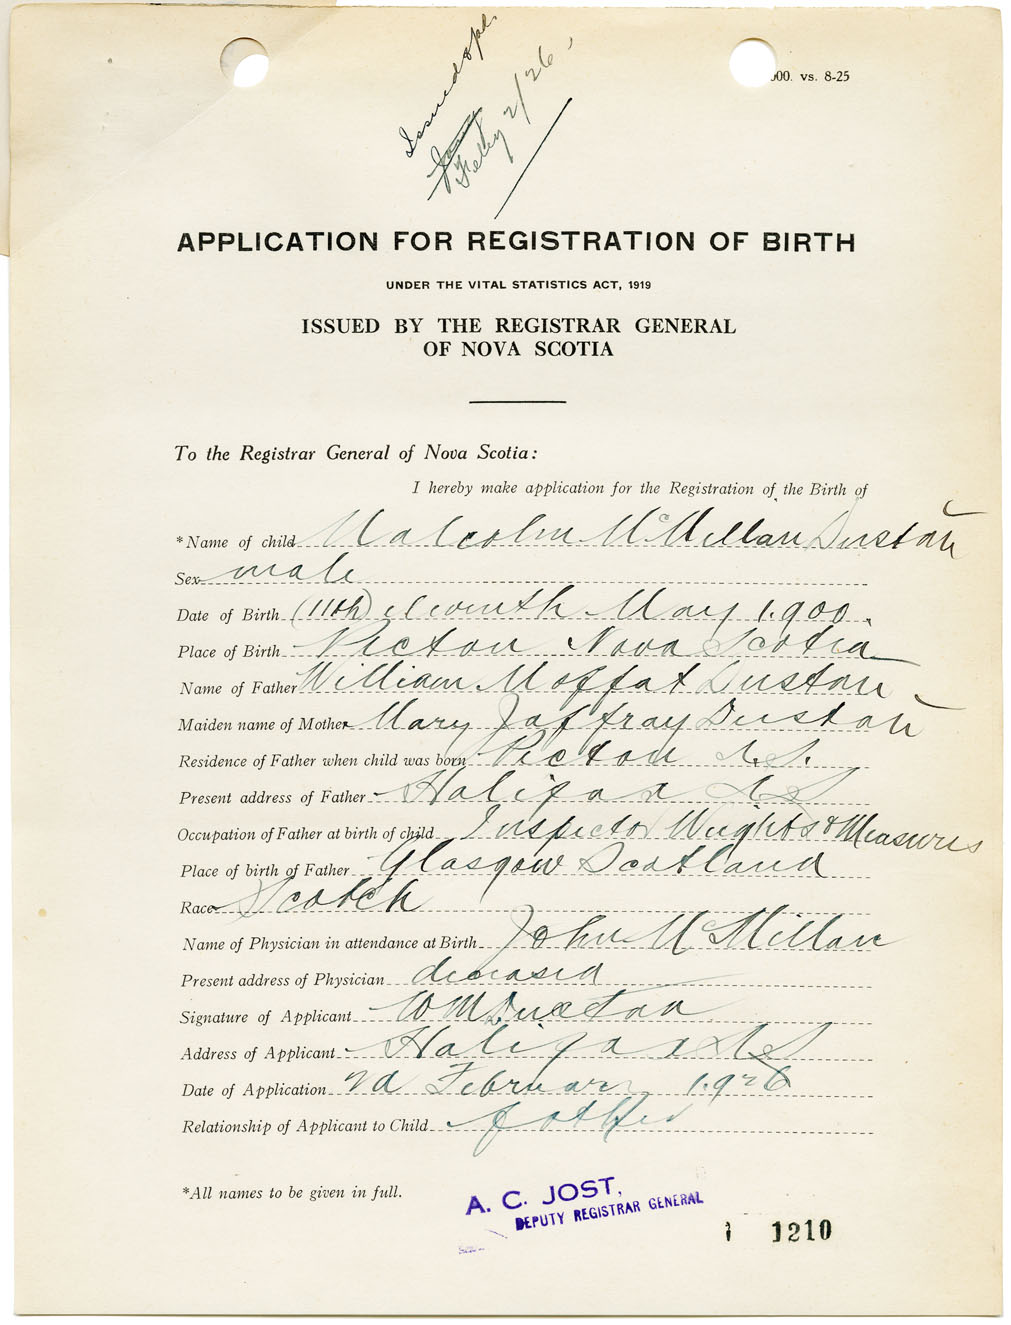 Issued apl.
Jany
Feby 2/26
000. vs. 8-25
APPLICATION FOR REGISTRATION OF BIRTH
UNDER THE VITAL STATISTICS ACT, 1919
ISSUED BY THE REGISTRAR GENERAL
OF NOVA SCOTIA
To the Registrar General of Nova Scotia:
I hereby make application for the Registration of the Birth of
*Name of child Malcolm McMillan Dustan
Sex male
Date of Birth (11th) eleventh May 1900.
Place of Birth Pictou Nova Scotia
Name of Father William Moffat Dustan
Maiden name of Mother Mary Jaffray Dustan
Residence of Father when child was born Pictou N.S.
Present address of Father Halifax N S
Occupation of Father at birth of child Inspector Weights & Measures
Place of birth of Father Glasgow Scotland
Race Scotch
Name of Physician in attendance at Birth John McMillan
Present address of Physician deceased
Signature of Applicant W M Dustan
Address of Applicant Halifax N S
Date of Application 2d February 1926
Relationship of Applicant to Child father
*All names to be given in full.
A. C. JOST,
DEPUTY REGISTRAR GENERAL
1210